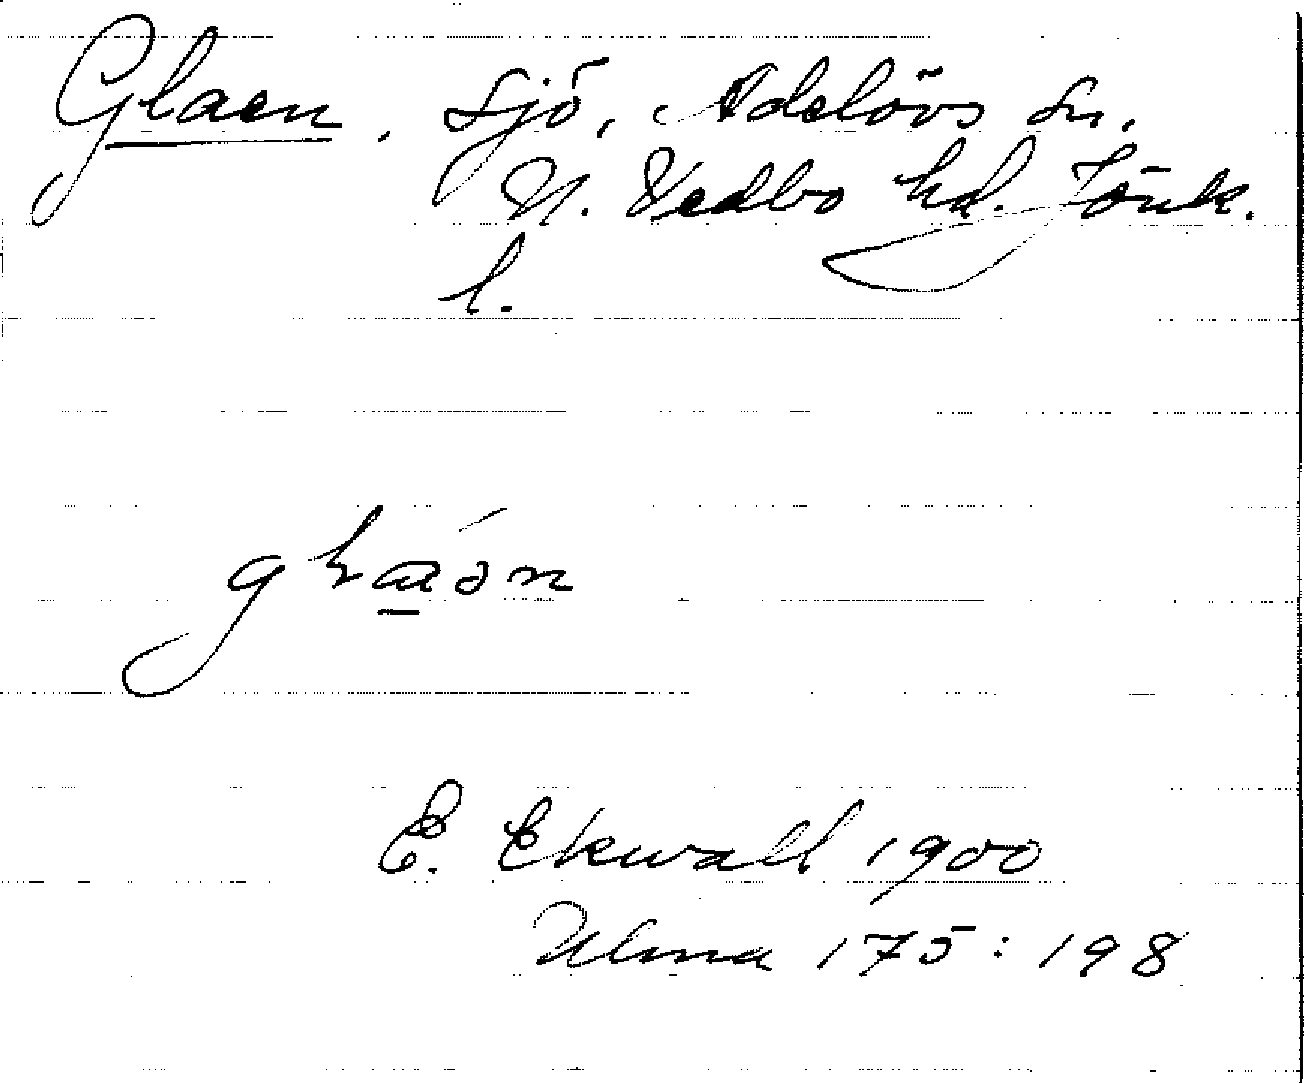 Glaen, sjö, Adelövs sn,
N. Vedbo hd. Jönk.
l.
E. Ekwall 1900
Ulma 175:198